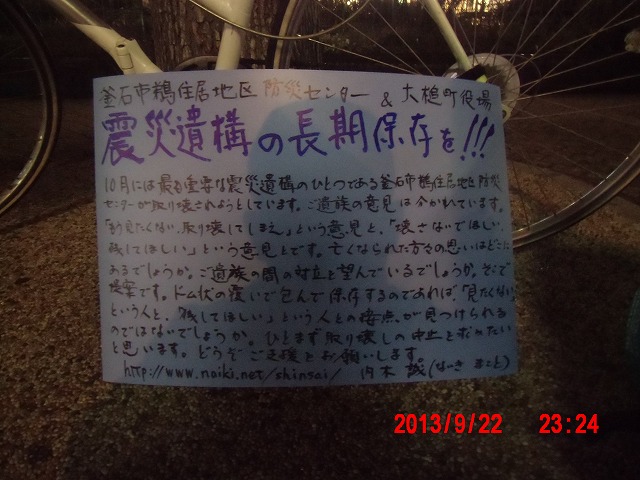 釜石市鵜住居地区防災センター & 大槌町役場
震災遺構の長期保存を!!!
10月には最も重要な震災遺構のひとつである釜石市鵜住居地区防災
センターが取り壊されようとしています。ご遺族の意見は分かれています。
「もう見たくない、取り壊してしまえ」という意見と、「壊さないでほしい、
残してほしい」という意見とです。亡くなられた方々の思いはどこに
あるでしょうか。ご遺族の間の対立を望んでいるでしょうか。そこで
提案です。ドーム状の覆いで包んで保存するのであれば、「見たくない」
という人と、「残してほしい」という人との接点が見つけられる
のではないでしょうか。ひとまず取り壊しの中止を求めたい
と思います。どうぞご支援をお願いします。
http://www.naiki.net/shinsai/ 内木 誠(ないき まこと)
2013/9/22 23:24